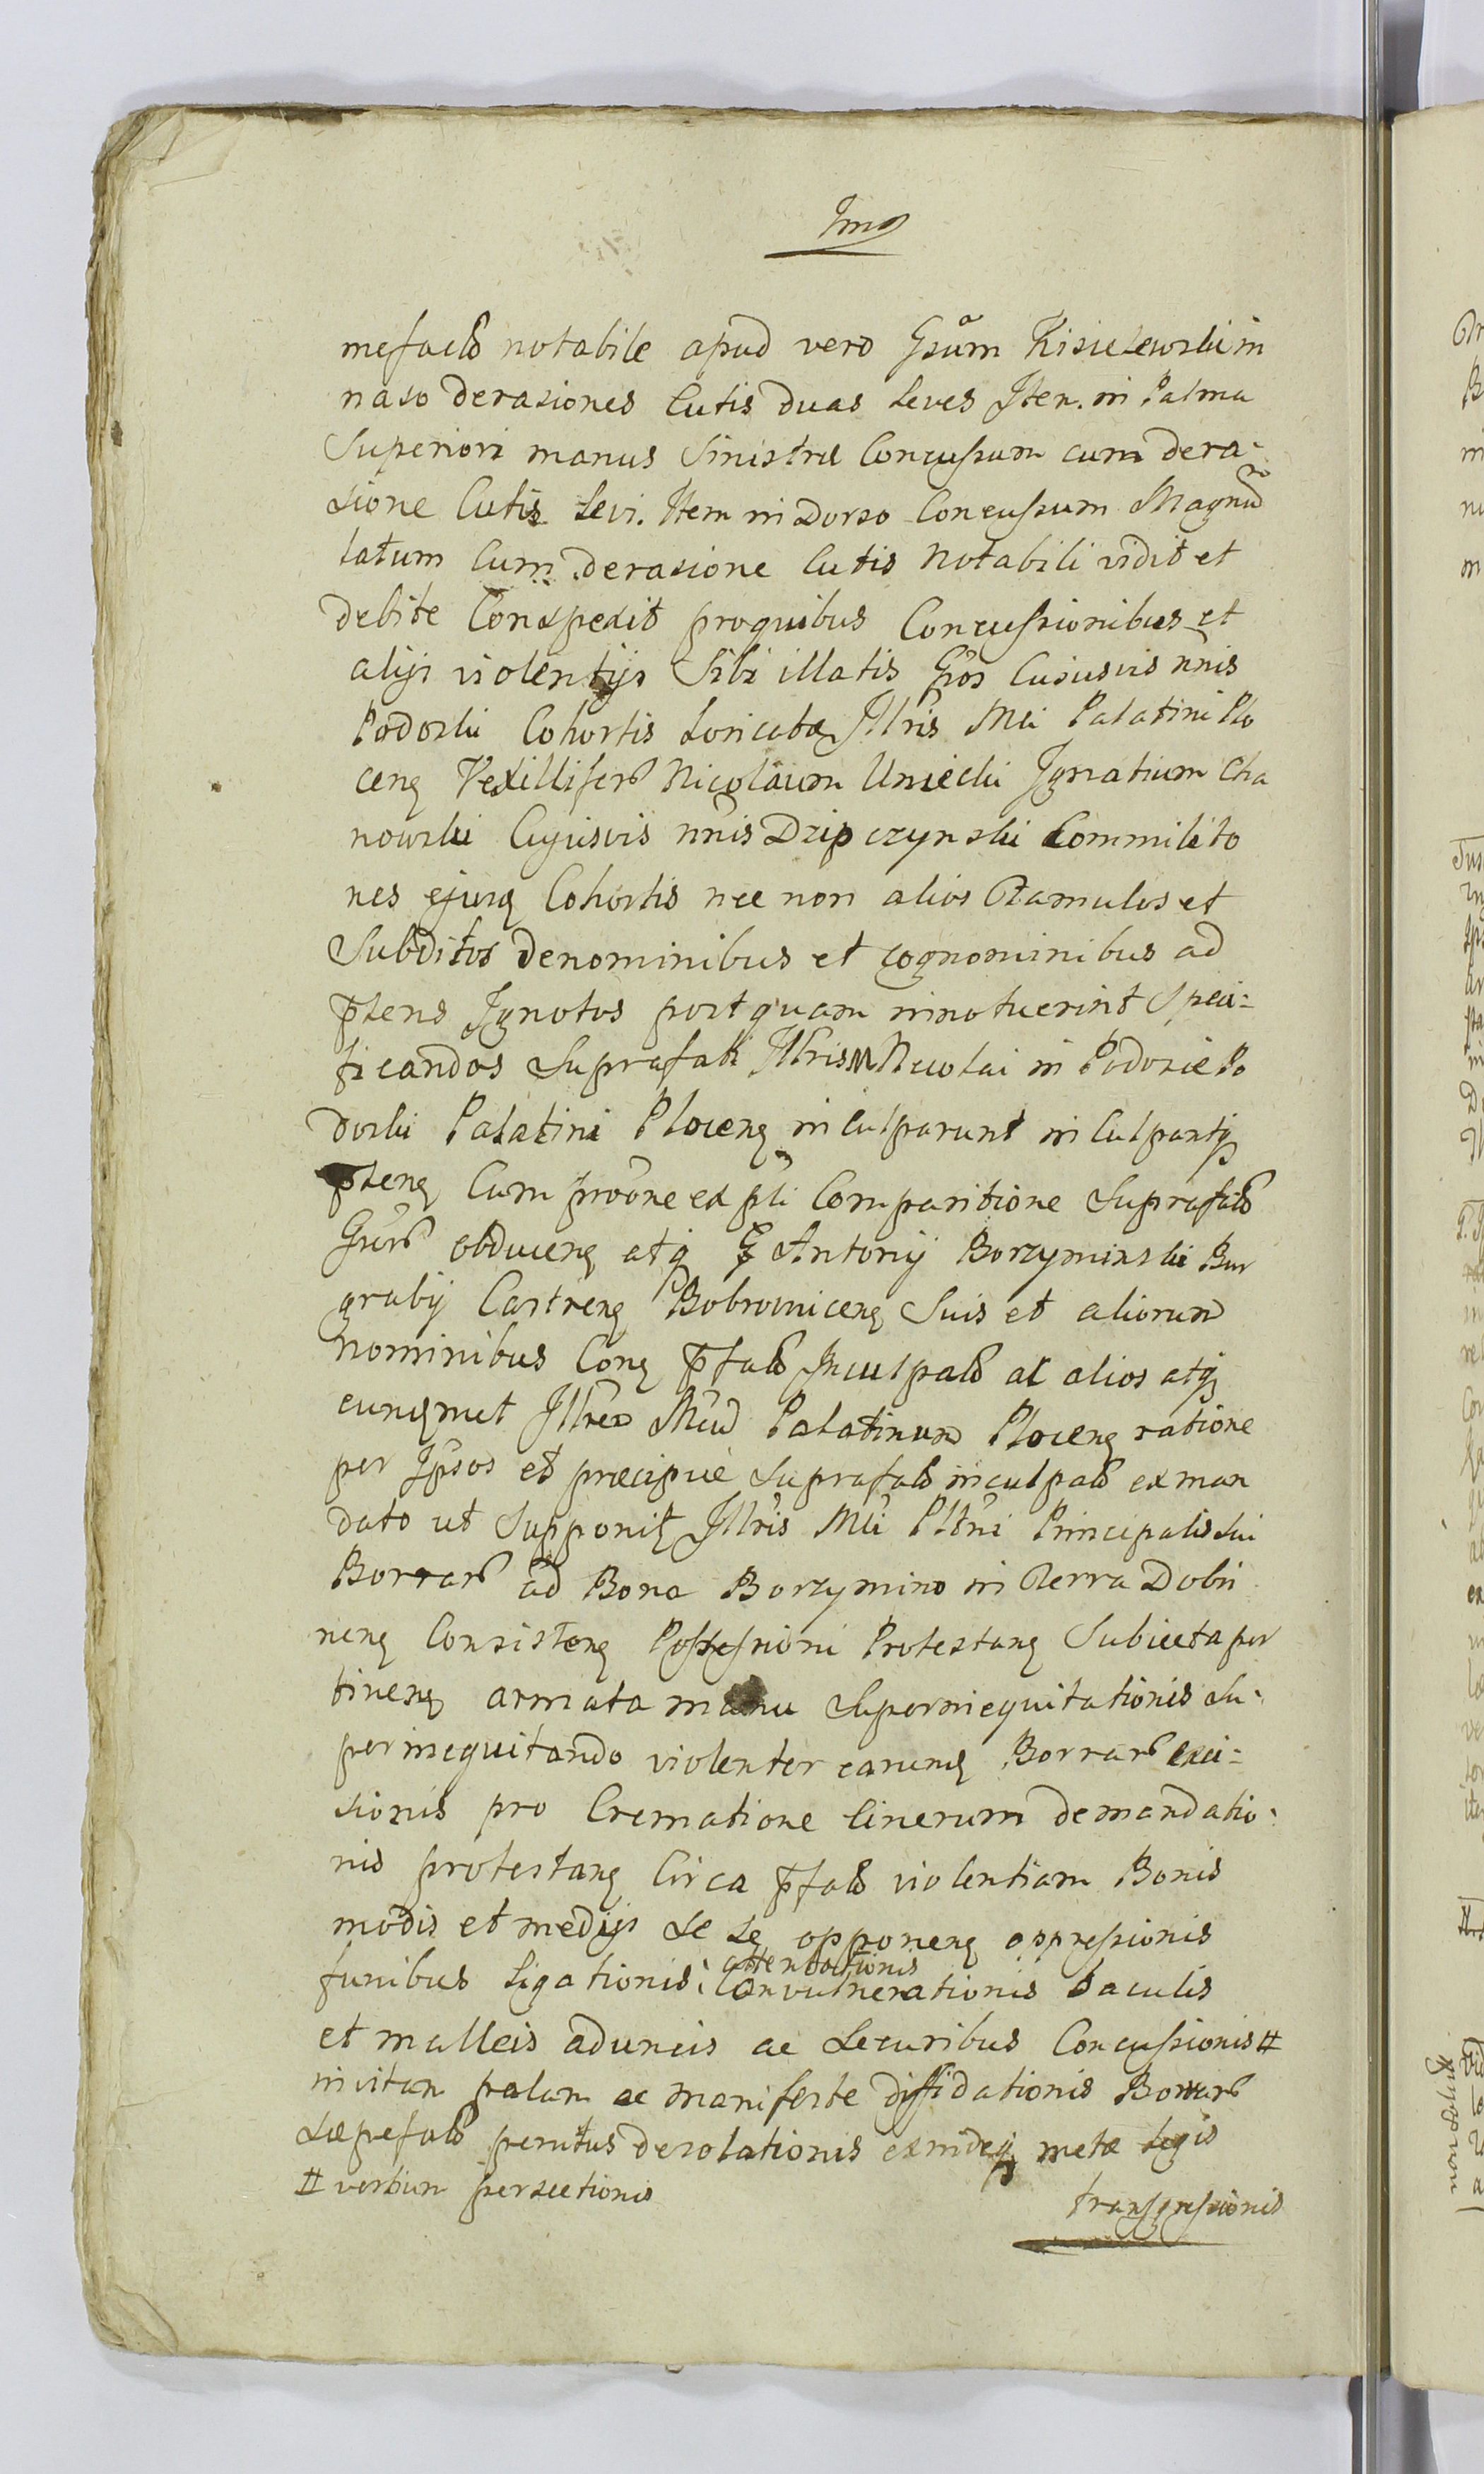 Imo
mefactō notabile apud vero Gsum Kisielewski in
naso derasiones Cutis duas Leves Item. in Palma
Superiori manus Sinistræ Concussum cum dera-
sione Cutis Levi. Item in Dorso Concussum Magnū
latum Cum derasione Cutis Notabili vidit et
debite Conspexit pro quibus Concussionibus et
alijs violentijs Sibi illatis Gsos Cuiusvis nnis
Podoski Cohortis Loricatæ Illris Mci Palatini Plo
cens Vexilliferū Nicolaum Umiecki Ignatium Cha
nowski Cujusvis nnis Dzipczynski Commilito
nes ejusq Cohortis nec non alios Famulos et
Subditos de nominibus et cognominibus ad
p̄sens Ignotos postquam innotuerint Speci-
ficandos Suprafati Illris M Nicolai in Podosie Po
doski Palatini Plocens inculparunt inculpantq
p̄sens Cum pröone ex pti Comparitione Suprafatō
Gsorū obducens atq G Antonij Borzyminski Bur
grabij Castrens Bobrownicens Suis et aliorum
nominibus Cong p̄fatō Inculpatō ac alios atq
eunqmet Illrem Mcū Palatinum Plocens ratione
per Ipsos et præcipue Suprafatō inculpatō ex man
dato ut Supponit Illris Mci Pltni Principalis Sui
Borrarū ad Bona Borzymino in Terra Dobri
nens Consistens Possessioni Protestans Subiecta per
tinens armata manu Superinequitationis Su-
perinequitando violenter earunq Borrarū exci-
sionis pro Crematione Cinerum demandatio-
nis protestans Circa p̄fatō violentiam Bonis
modis et medijs Se Se opponens oppressionis
funibus Ligationis attentationis Convulnerationis baculis
et malleis aduncis ac Securibus Concussionis #
in vitam palam ac manifeste diffidationis Borrarū
Sæpefatō penitus desolationis exindeq metæ Legis
# verbum persectionis
transgressionis